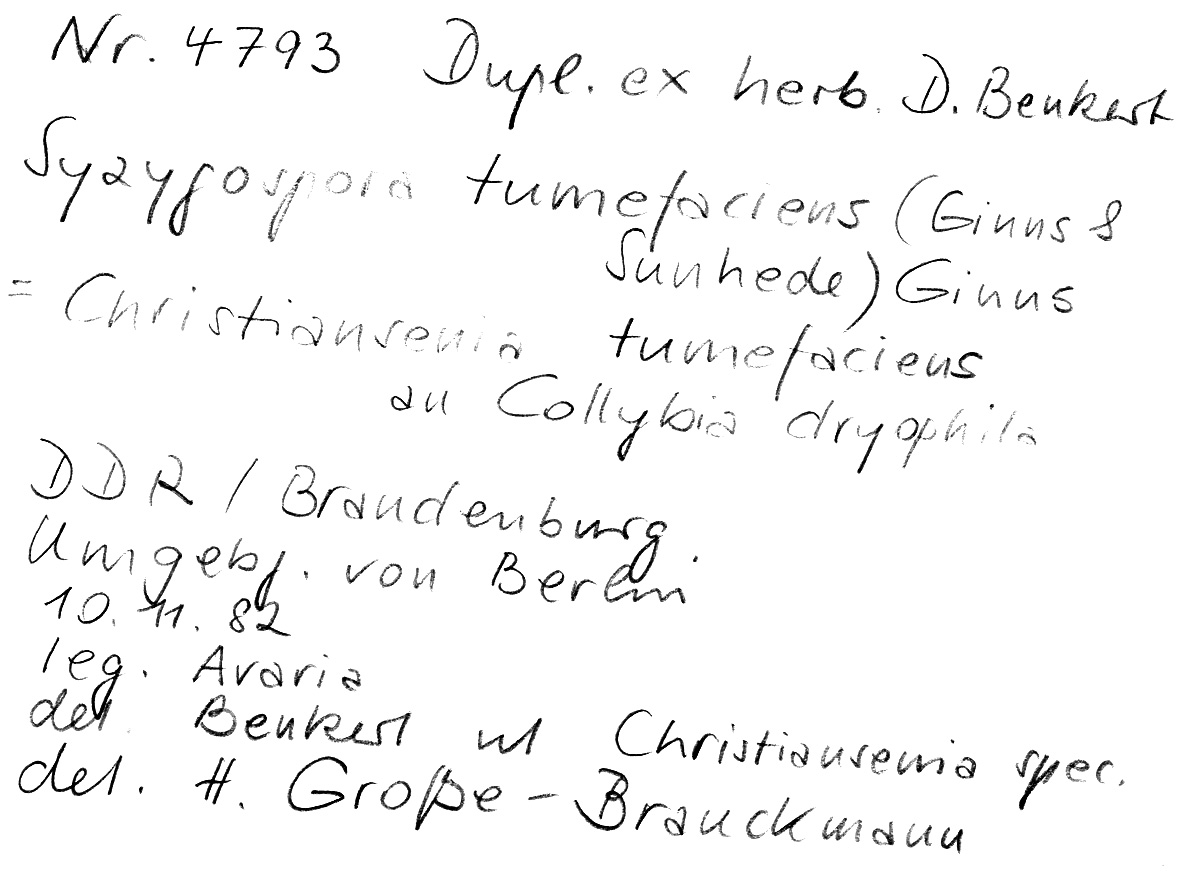 Nr. 4793 Dupl. ex herb. D. Benkert
Syzygospora tumefaciens (Ginns &
Sunhede) Ginns
= Christiansenia tumefaciens
an Collybia dryophila
DDR / Brandenburg.
Umgebg. von Berlin
10. 11. 82
leg. Avaria
det. Benkert ut Christiansenia spec.
det. H. Große-Brauckmann